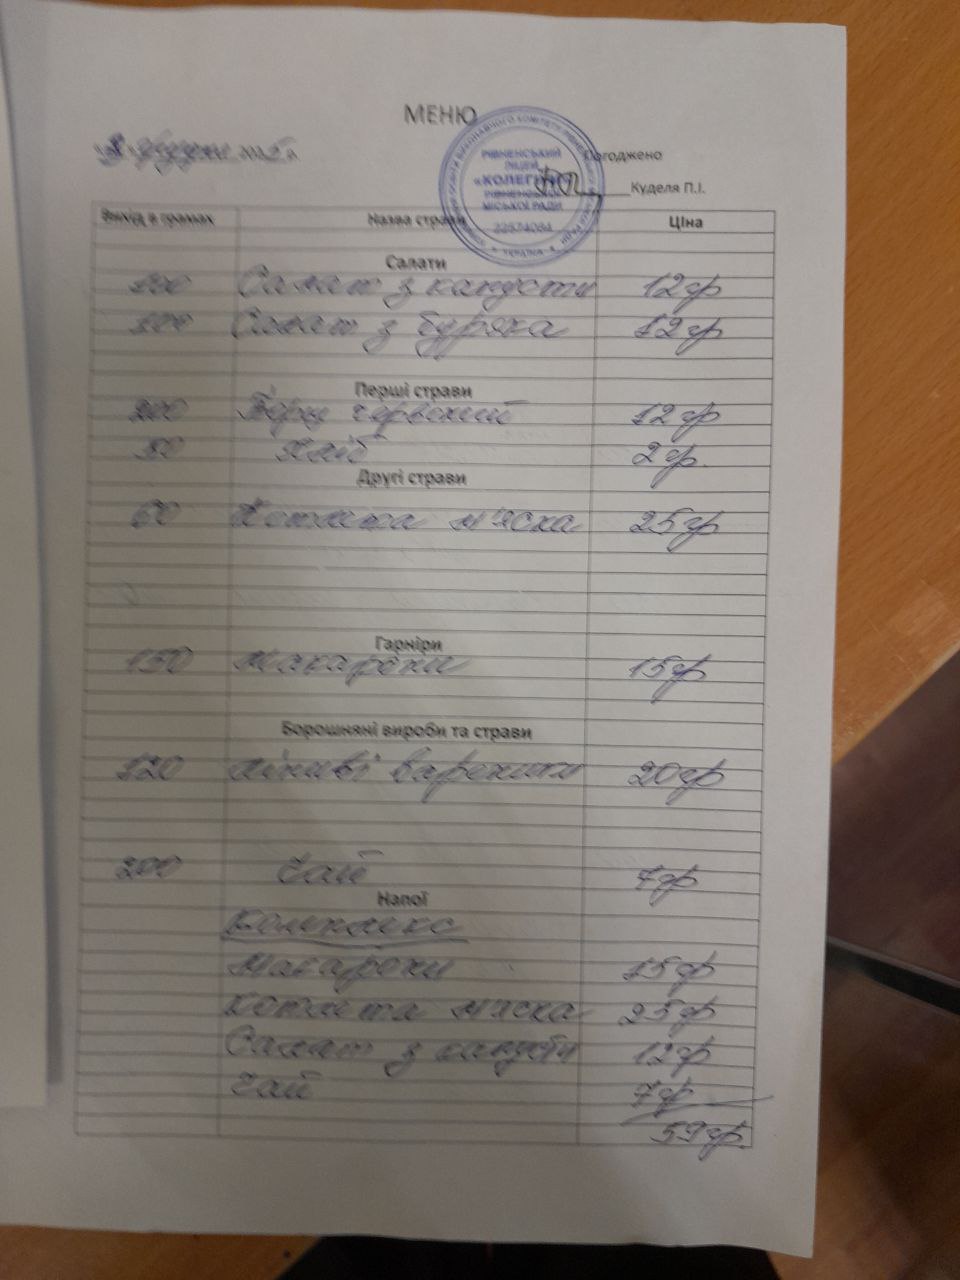 МЕНЮ
грудня 2025 р.
Погоджено
Куделя П.І.
РІВНЕНСЬКИЙ
ЛІЦЕЙ
«КОЛЕГІУМ»
РІВНЕНСЬКОЇ
МІСЬКОЇ РАДИ
22574084
УКРАЇНА
Вихід в грамах Назва страви Ціна
Салати
100 Салат з капусти 12гр
100 Салат з буряка 12гр
Перші страви
200 Борщ червоний 12гр
50 Хліб 2гр.
Другі страви
60 Котлета м'ясна 25гр
Гарніри
150 Макарони 15гр
Борошняні вироби та страви
120 Ліниві вареники 20гр
200 Чай 7гр
Напої
Комплекс
Макарони 15гр
Котлета м'ясна 25гр
Салат з капусти 12гр
Чай 7гр
59гр.